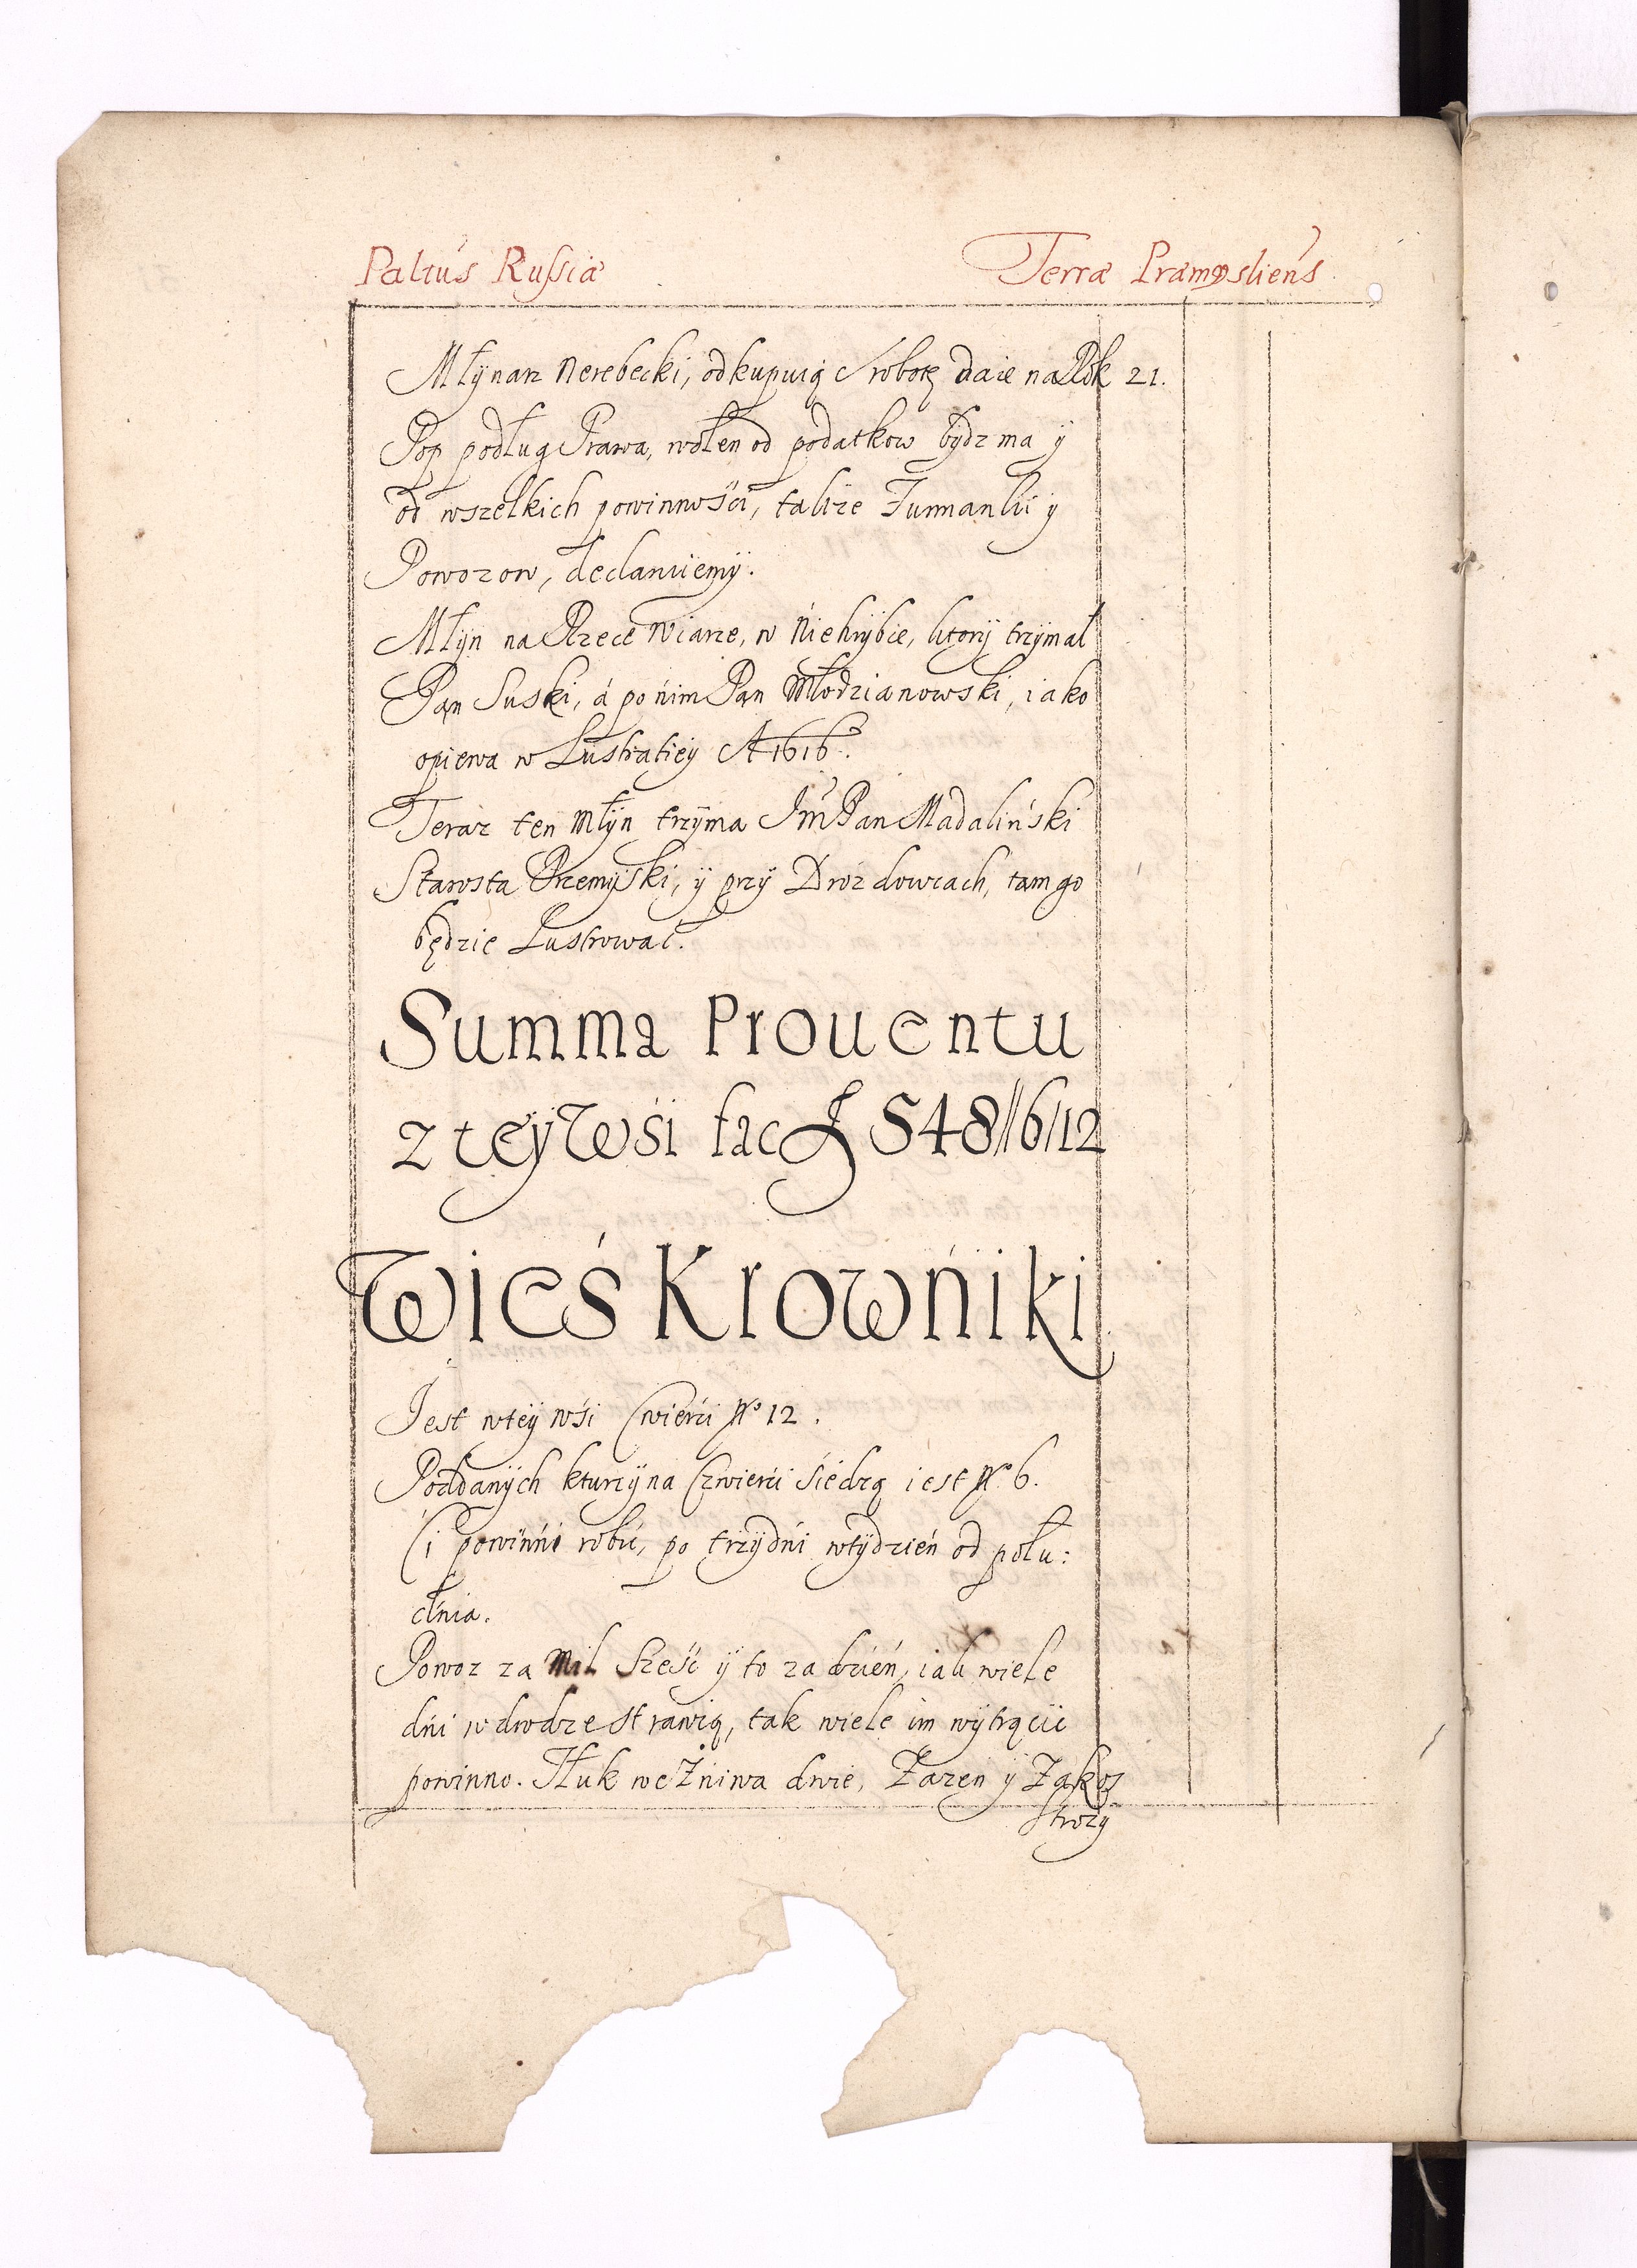 Paltus Russiæ Terræ Præmysliens
Młÿnarz Nerebecki, odkupuią robotę daie na Rok 21.
Pop podług Prawa, wolen od podatkow bÿdz ma ÿ
od wszelkich powinnośći, takze Furmanki y
Powozow, declaruiemÿ.
Młÿn na Rzece Wiarze, w Niehrÿbce, ktorÿ trzÿmał
Pan Suski, á po nim Pan Młodzianowski, iako
opiewa w Lustratieÿ A 1616°.
Teraz ten Młÿn trzÿma Jm Pan Madaliński
Starosta Przemÿski, ÿ przÿ Drozdowcach, tam go
będzie Lustrowac.
Summa Prouentu
z teÿ Wśi fac f 548//6/12
Wieś Krowńiki
Jest wteÿ wśi Cwierci N° 12.
Poddanÿch kturzÿ na Czwierci śiedzą iest N° 6.
Ci powinńi robic, po trzÿ dńi wtÿdzień od połu:
dnia.
Powoz za Mil Sześć ÿ to za dzień, iak wiele
dńi w drodze strawią, tak wiele im wÿtrącic
powinno. Tłuk we Żniwa dwie, Zazen ÿ Zakos
strozÿ